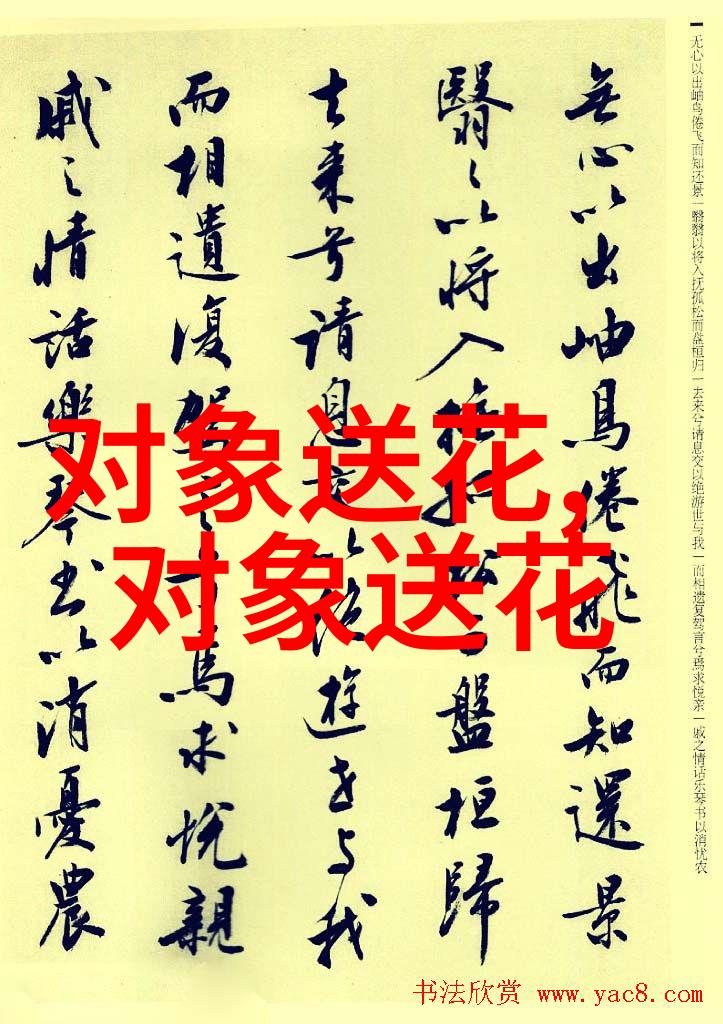 无心以出岫鸟倦飞而知还景|翳翳以将入抚孤松而盘桓归|去来兮请息交以绝游世与我|而相遗复驾言兮焉求悦亲|戚之情话乐琴书以消忧农
無心以出岫鳥倦飛而知還景
翳〻以将入撫孤松而盤桓歸
去来兮請息交以絶遊世与我
而相遺復駕言兮焉求悦親
戚之情話樂琴书以消憂農
对象送花,
对象送花
书法欣赏 www.yac8.com